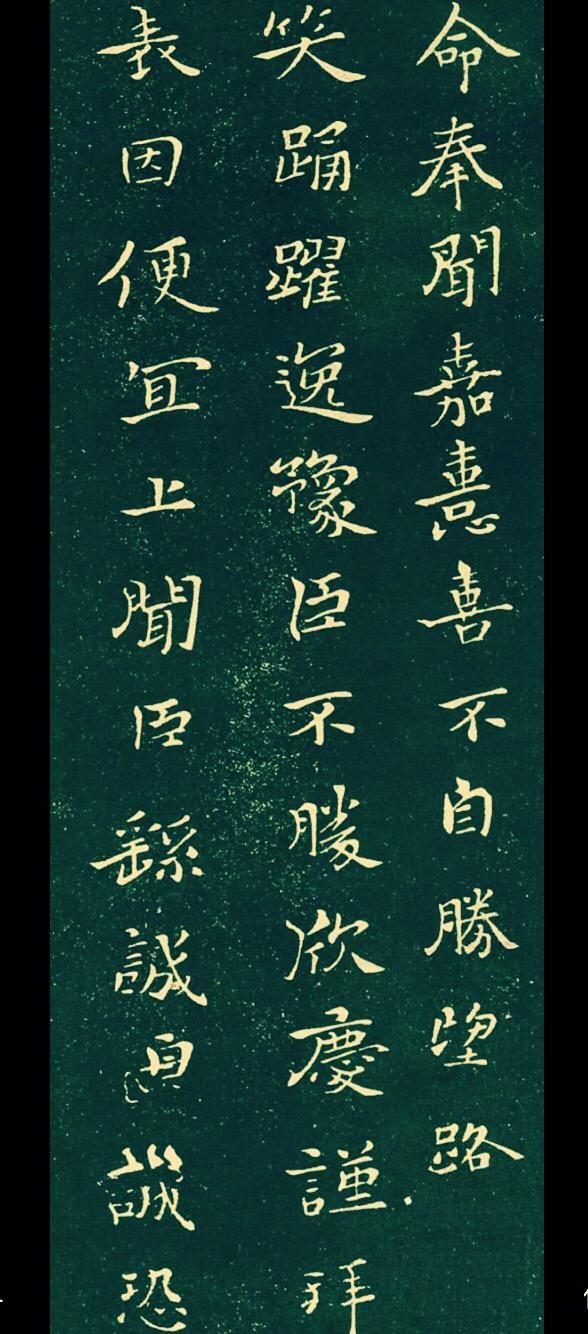 命奉聞嘉憙喜不自勝望路
笑踊躍逸豫臣不勝欣慶謹拜
表因便宜上聞臣繇誠誠恐